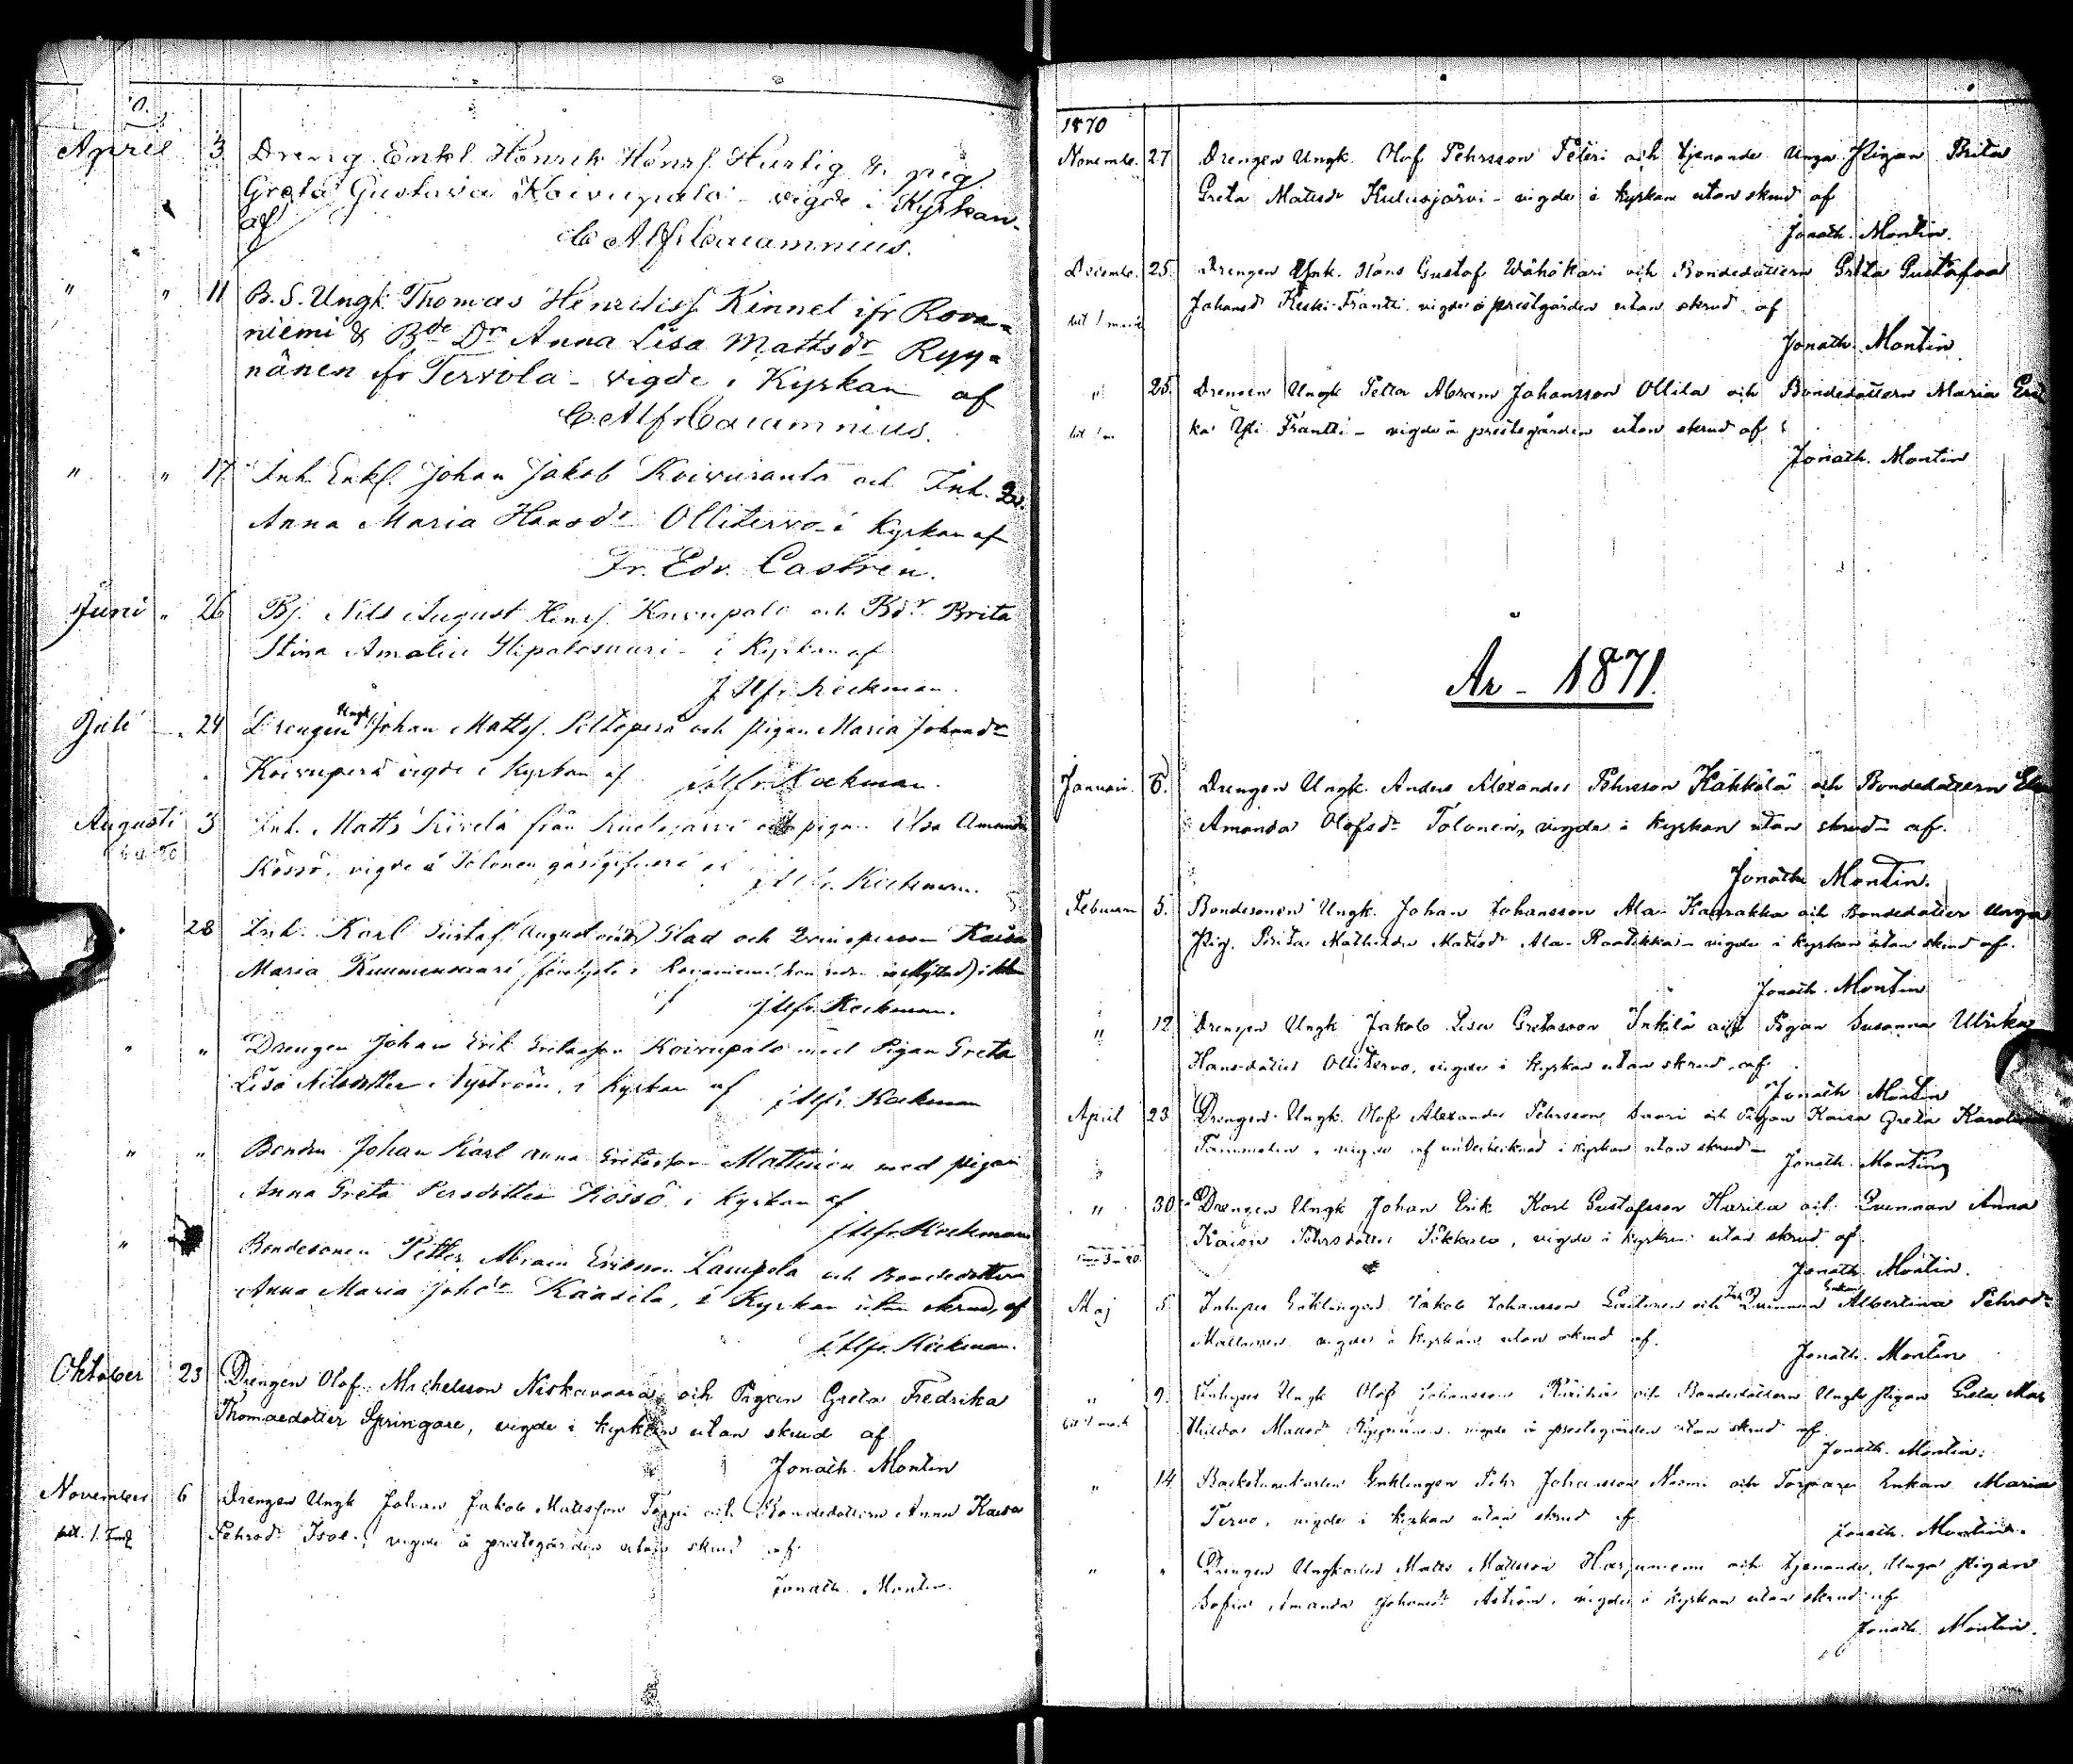 0.
April 3 Dreng Enkl Henrik Henrs. Hurtig & pig.
Greta Gustava Koivupalo - vigde i Kyrkan.
af
C Alfr Cajamnius.
" " 11 B. S. Ungk. Thomas Henrikss. Kinnel ifr Rova=
niemi & Bde Dr Anna Lisa Mattsdr Ryy=
nänen ifr Tervola - vigde i Kyrkan af
C. Alfr Cajamnius.
" " 17 Inh. Enkl. Johan Jakob Koivuranta och Inh. Dr.
Anna Maria Hansdr Ollitervo i Kyrkan af
Fr. Edv. Castrén.
Juni " 26 Bj. Nils August Henrs. Koivupalo och Bdr Brita
Stina Amalia - i Kyrkan af
J Alfr. Keckman.
Juli " 24 Drengen Ungk. Johan Matts. Peltoperä och pigan Maria Johansdr
Koivuperä vigde i Kyrkan af J Alfr. Keckman.
Augusti 3 Inh. Matts Kivelä från och pigan Elsa Amanda
Kössö, vigde å Tolonen gästgifveri af J Alfr. Keckman.
" 28 Inh. Karl Gustaf Glad och Qvinsperson Kaisa
Maria Kuumuvaara i Rovaniemi
af J Alfr. Keckman.
" " Drengen Johan Erik Koivupalo med Pigan Greta
Lisa Nilsdotter Nyström, i Kyrkan af J Alfr. Keckman
" " Bonden Johan Karl Anna Mattinen med pigan
Anna Greta Persdotter Kössö i Kyrkan af
J Alfr. Keckman
" Bondesonen Petter Abram Ersson Lampela och Bondedottern
Anna Maria Johdr Kaasila, i Kyrkan utan skrud, af
J Alfr. Keckman.
Oktober 23 Drengen Olof Michelsson Niskavaara och Pigan Greta Fredrika
Thomaedotter Springare, vigde i kyrkan utan skrud af
Jonath. Montin
November 6 Drengen Ungk Johan Jakob Matsson Toppi och Bondedottern Anna Kaisa
Pehrsdr vigde å prestegården utan skrud af
Jonath. Montin.
1870
Novembe. 27 Drengen Ungk. Olof Pehrsson Peteri och tjenande Unga Pigan Brita
Greta Matsdr Kulusjärvi - vigde i kyrkan utan skrud af
Jonath. Montin.
Decembe. 25. Drengen Ungk. Hans Gustaf Wähökari och Bondedottern Greta Gustafva
Johansd Keski-Frantti vigde å prestgården utan skrud af
Jonath. Montin
" 25. Drengen Ungk Petter Abram Johansson Ollila och Bondedottern Maria
Yli Frantti - vigde å prestegården utan skrud af
Jonath. Montin
År - 1871.
Januari. 6. Drengen Ungk. Anders Alexander Pehrsson Kähkölä och Bondedottern
Amanda Olofsdr Tolonen, vigde i kyrkan utan skrud af.
Jonath Montin.
Februari 5. Bondesonen Ungk. Johan Johansson Ala- och Bondedotter unga
Pig. Brita Mathilda Mattsdr Ala-Raatikka - vigde i kyrkan utan skrud af.
Jonath. Montin
" 12 Drengen Ungk Jakob Lisa Gretasson Inkilä och Pigan Susanna Ulrika
Hansdotter Ollitervo, vigde i kyrkan utan skrud af
Jonath Montin
April 23 Drengen Ungk. Olof Alexander Pehrsson Saari och Pigan Kaisa Greta Karolina
vigde af undertecknad i kyrkan utan skrud -
Jonath. Montin
" 30 Drengen Ungk Johan Erik Karl Gustafsson Harila och Qvinnan Anna
Kaisa Pehrsdotter vigde i kyrkan utan skrud af
Jonath. Montin.
Maj 5. Inhyses Enklingen Jakob Johansson och Qvinnan Albertina Pehrsdr
Mattinen vigde i kyrkan utan skrud af.
Jonath. Montin
" 9. Inhyses Ungk Olof Johansson och Bondedottern Unga Pigan Greta
Mattsdr vigde å prestegården utan skrud af
Jonath. Montin.
" 14 Backstukarlen Enklingen Pehr Johansson Niemi och Torpare Enkan Maria
Tervo, vigde i kyrkan utan skrud af
Jonath. Montin.
" " Drengen Ungkarlen Matts Mattsson Harjuniemi och tjenande, Unga pigan
Sofia Amanda Johansdr Åström, vigde i kyrkan utan skrud af
Jonath. Montin.